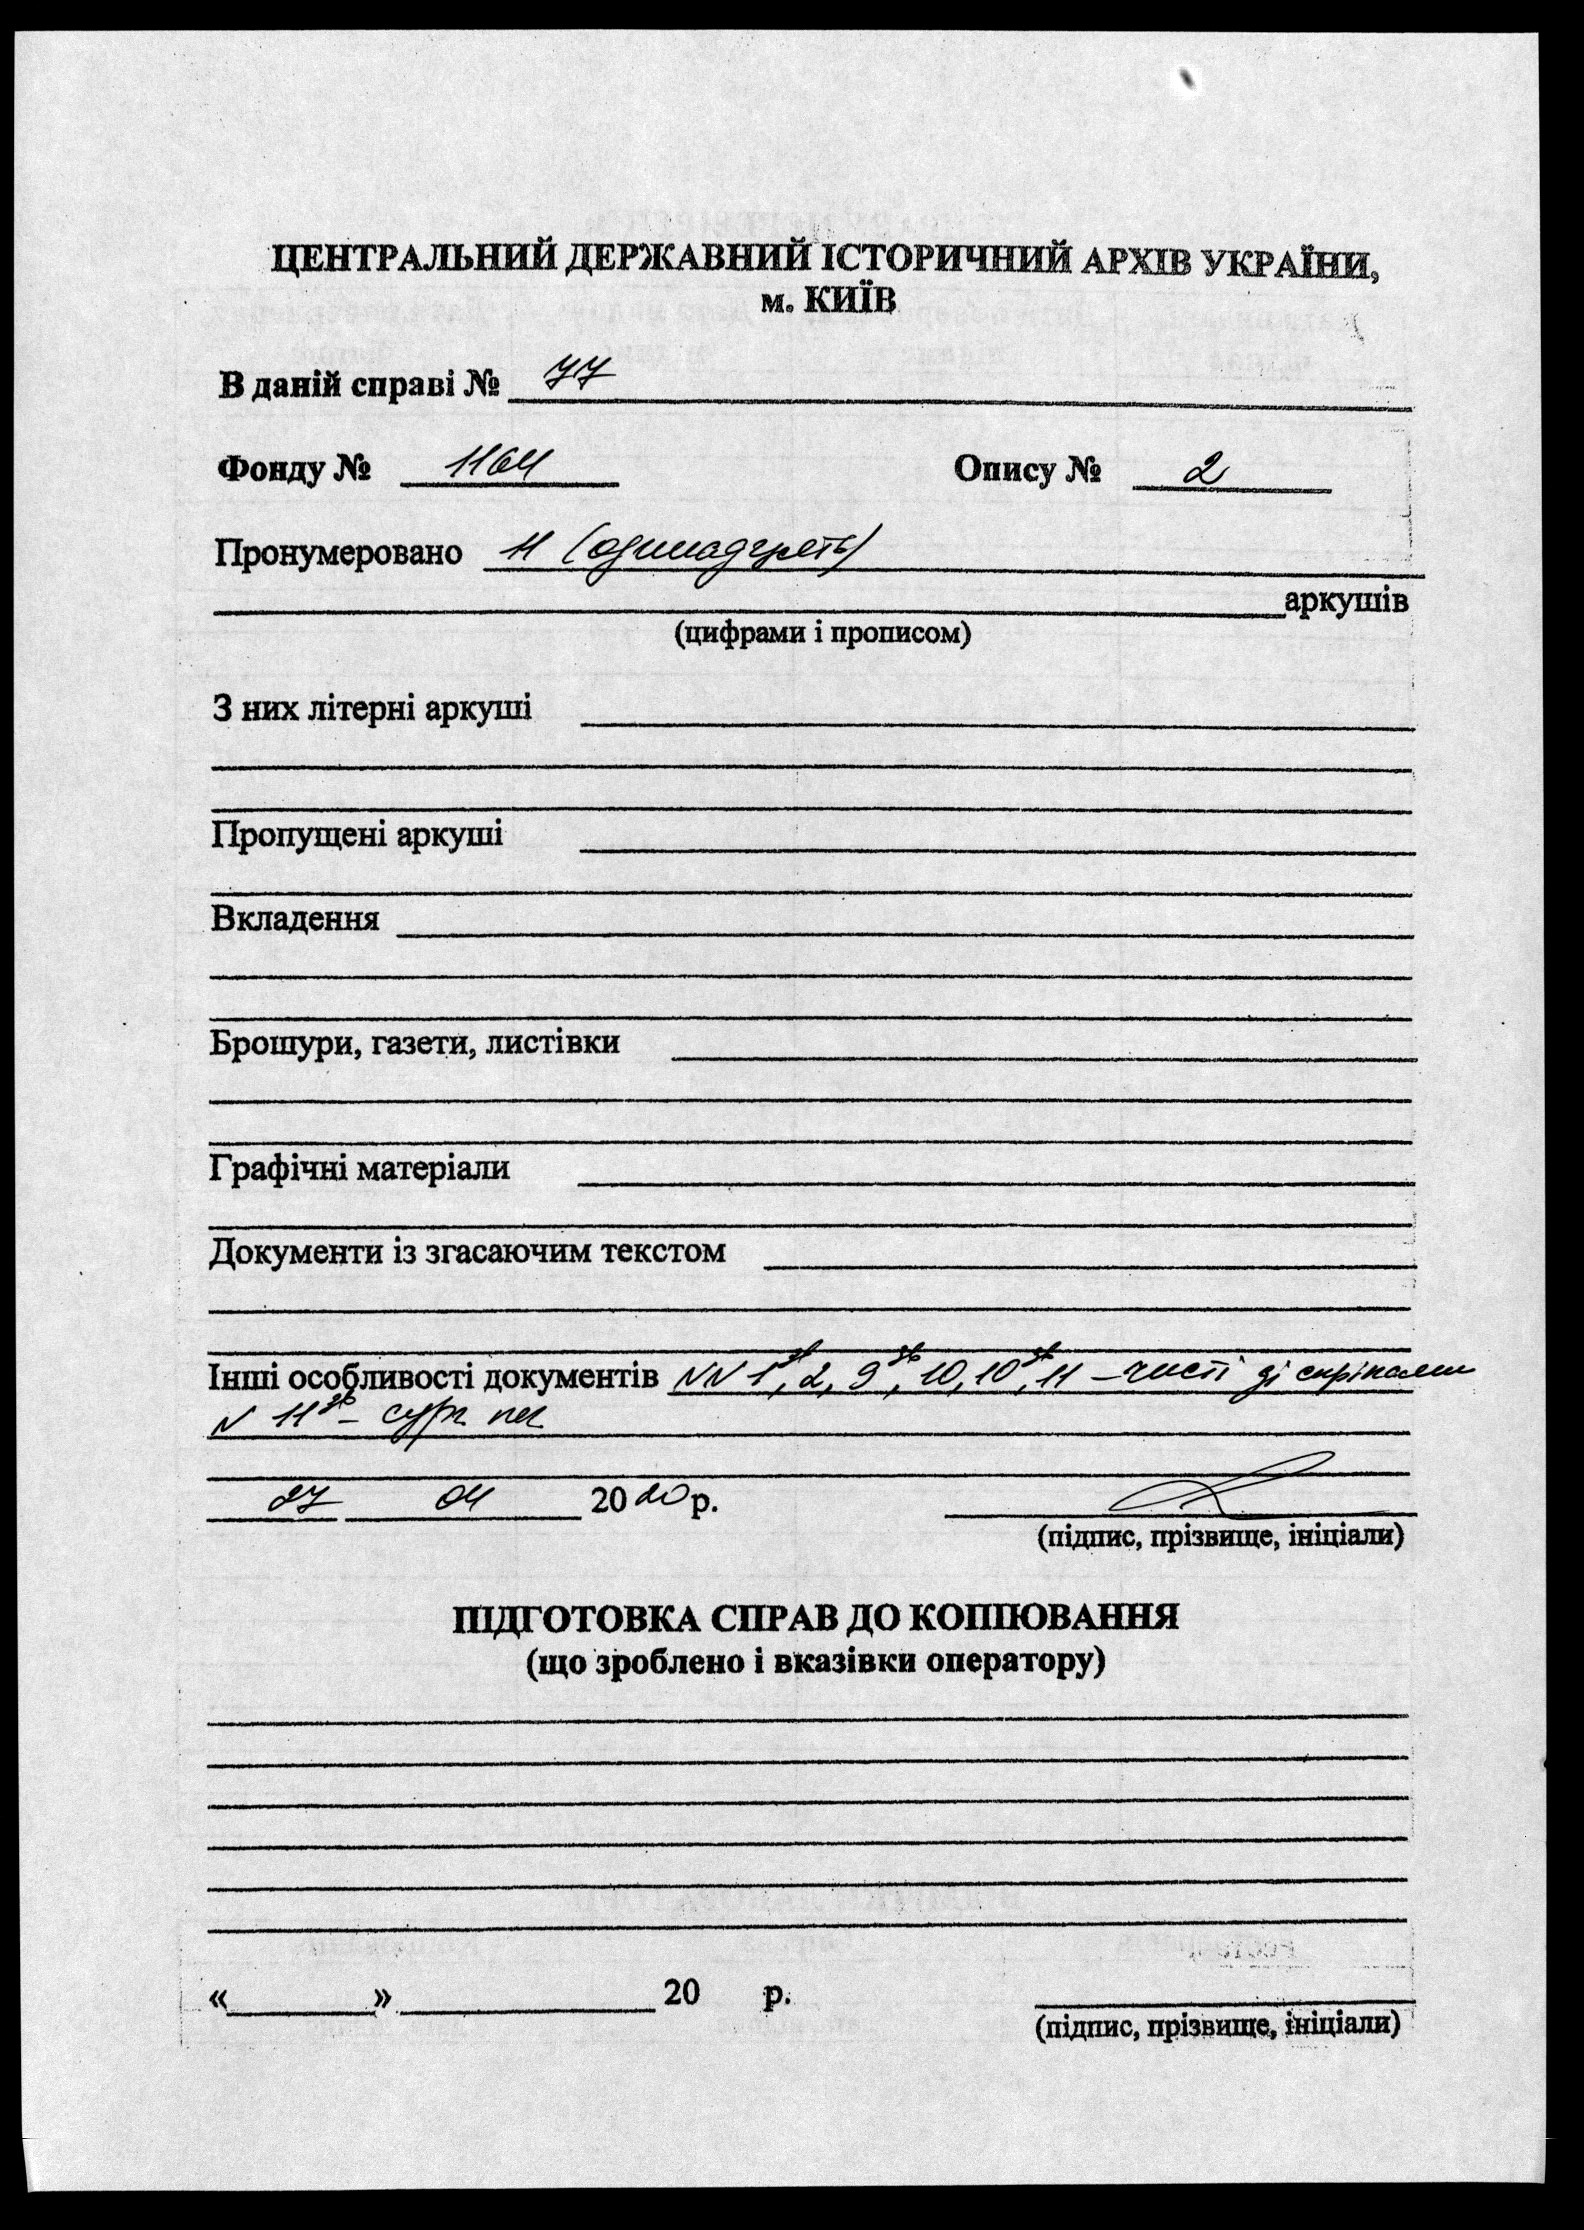 ЦЕНТРАЛЬНИЙ ДЕРЖАВНИЙ ІСТОРИЧНИЙ АРХІВ УКРАЇНИ,
м. КИЇВ
В даній справі № 77
Фонду № 1164 Опису № 2
Пронумеровано 11 (одинадцять)
аркушів
(цифрами і прописом)
З них літерні аркуші
Пропущені аркуші
Вкладення
Брошури, газети, листівки
Графічні матеріали
Документи із згасаючим текстом
Інші особливості документів NN 1зв, 2, 9зв, 10, 10зв, 11 – чисті зі скріпами
N 11зв –
27 04 2020 р.
(підпис, прізвище, ініціали)
ПІДГОТОВКА СПРАВ ДО КОПІЮВАННЯ
(що зроблено і вказівки оператору)
« » 20 р.
(підпис, прізвище, ініціали)